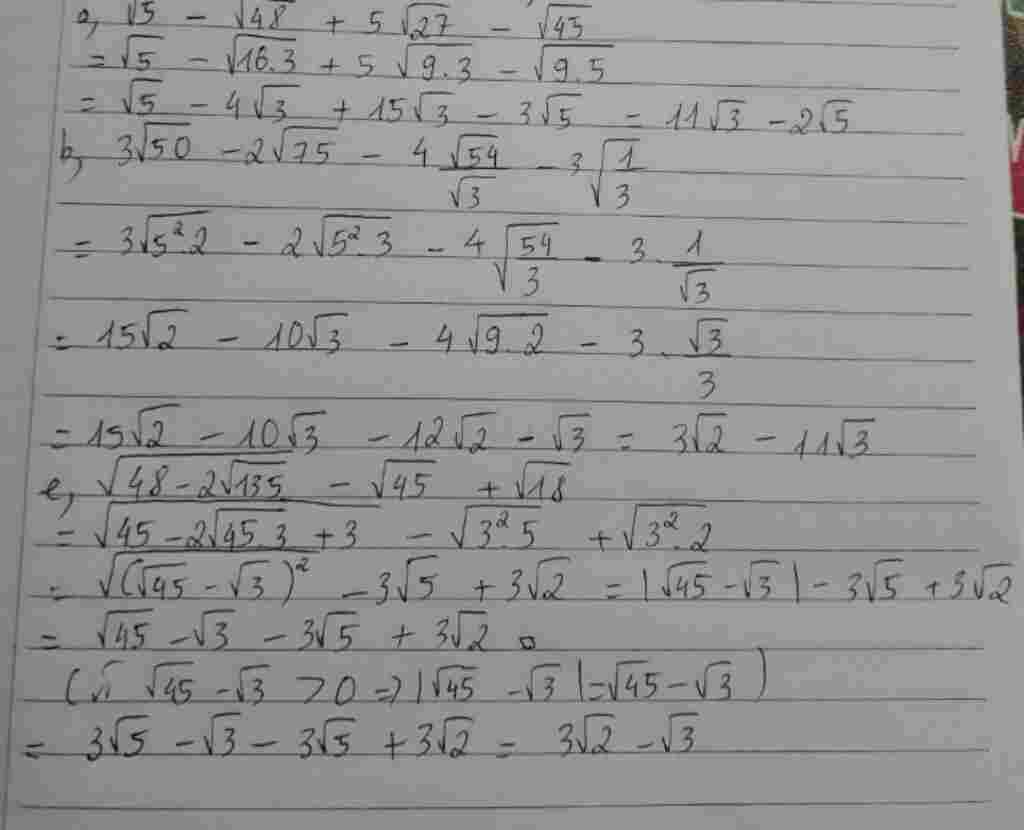 a, √5 - √48 + 5√27 - √45
= √5 - √16.3 + 5√9.3 - √9.5
= √5 - 4√3 + 15√3 - 3√5 = 11√3 - 2√5
b, 3√50 - 2√75 - 4 √54/√3 - 3√(1/3)
= 3√5².2 - 2√5².3 - 4√(54/3) - 3. 1/√3
= 15√2 - 10√3 - 4√9.2 - 3. √3/3
= 15√2 - 10√3 - 12√2 - √3 = 3√2 - 11√3
e, √(48 - 2√135) - √45 + √18
= √(45 - 2√45.3 + 3) - √3².5 + √3².2
= √(√45 - √3)² - 3√5 + 3√2 = |√45 - √3| - 3√5 + 3√2
= √45 - √3 - 3√5 + 3√2
( √45 - √3 > 0 => |√45 - √3| = √45 - √3 )
= 3√5 - √3 - 3√5 + 3√2 = 3√2 - √3